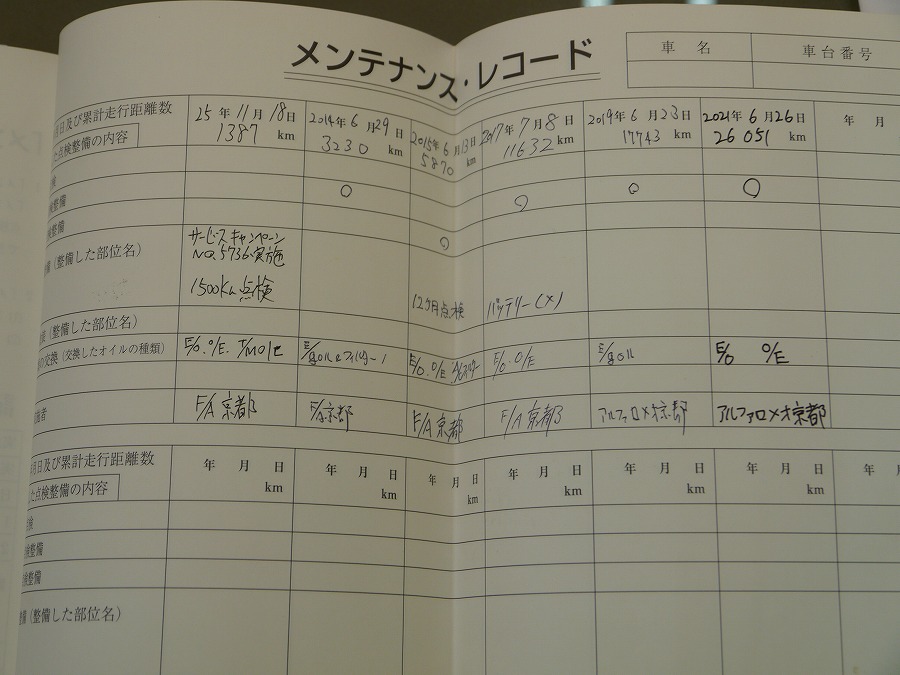 メンテナンス・レコード
車名
車台番号
日及び累計走行距離数
25年11月18日
1387 km
2014年6月29日
3230 km
2015年6月13日
5870 km
2017年7月8日
11632 km
2019年6月23日
17743 km
2021年6月26日
26051 km
年 月
た点検整備の内容
検
検整備 ○ ○ ○ ○
検整備 ○
備（整備した部位名）
サービスキャンペーン
NO.5736実施
1500Km点検
12ヶ月点検
バッテリー(×)
（整備した部位名）
の交換（交換したオイルの種類）
E/O. O/E.
E/goil
E/O. O/E
E/O. O/E
E/goil
E/O O/E
者
F/A 京都
F/A京都
F/A 京都
F/A 京都
アルファロメオ京都
アルファロメオ京都
月日及び累計走行距離数
年 月 日
km
年 月 日
km
年 月 日
km
年 月 日
km
年 月 日
km
年 月 日
km
年 月
た点検整備の内容
検
検整備
検整備
備（整備した部位名）